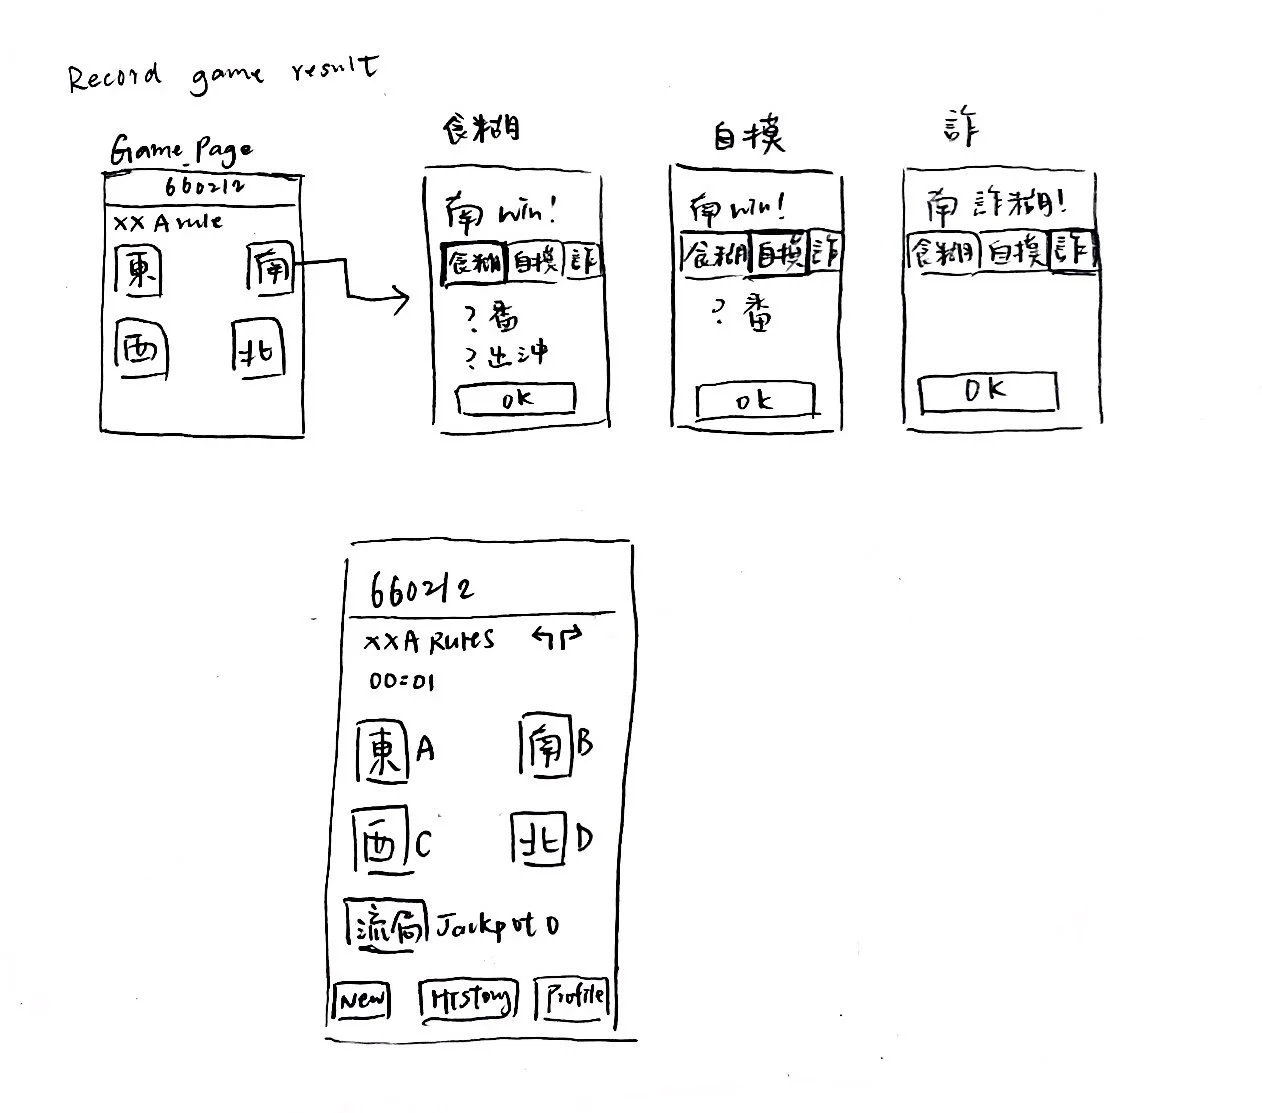 Record game result
Game Page
660212
XX A rule
東 南
西 北
食糊
南 win!
食糊 自摸 詐
? 番
? 出沖
OK
自摸
南 win!
食糊 自摸 詐
? 番
OK
詐
南 詐糊!
食糊 自摸 詐
OK
660212
XXA Rules
00:01
東 A 南 B
西 C 北 D
流局 Jackpot 0
New History Profile